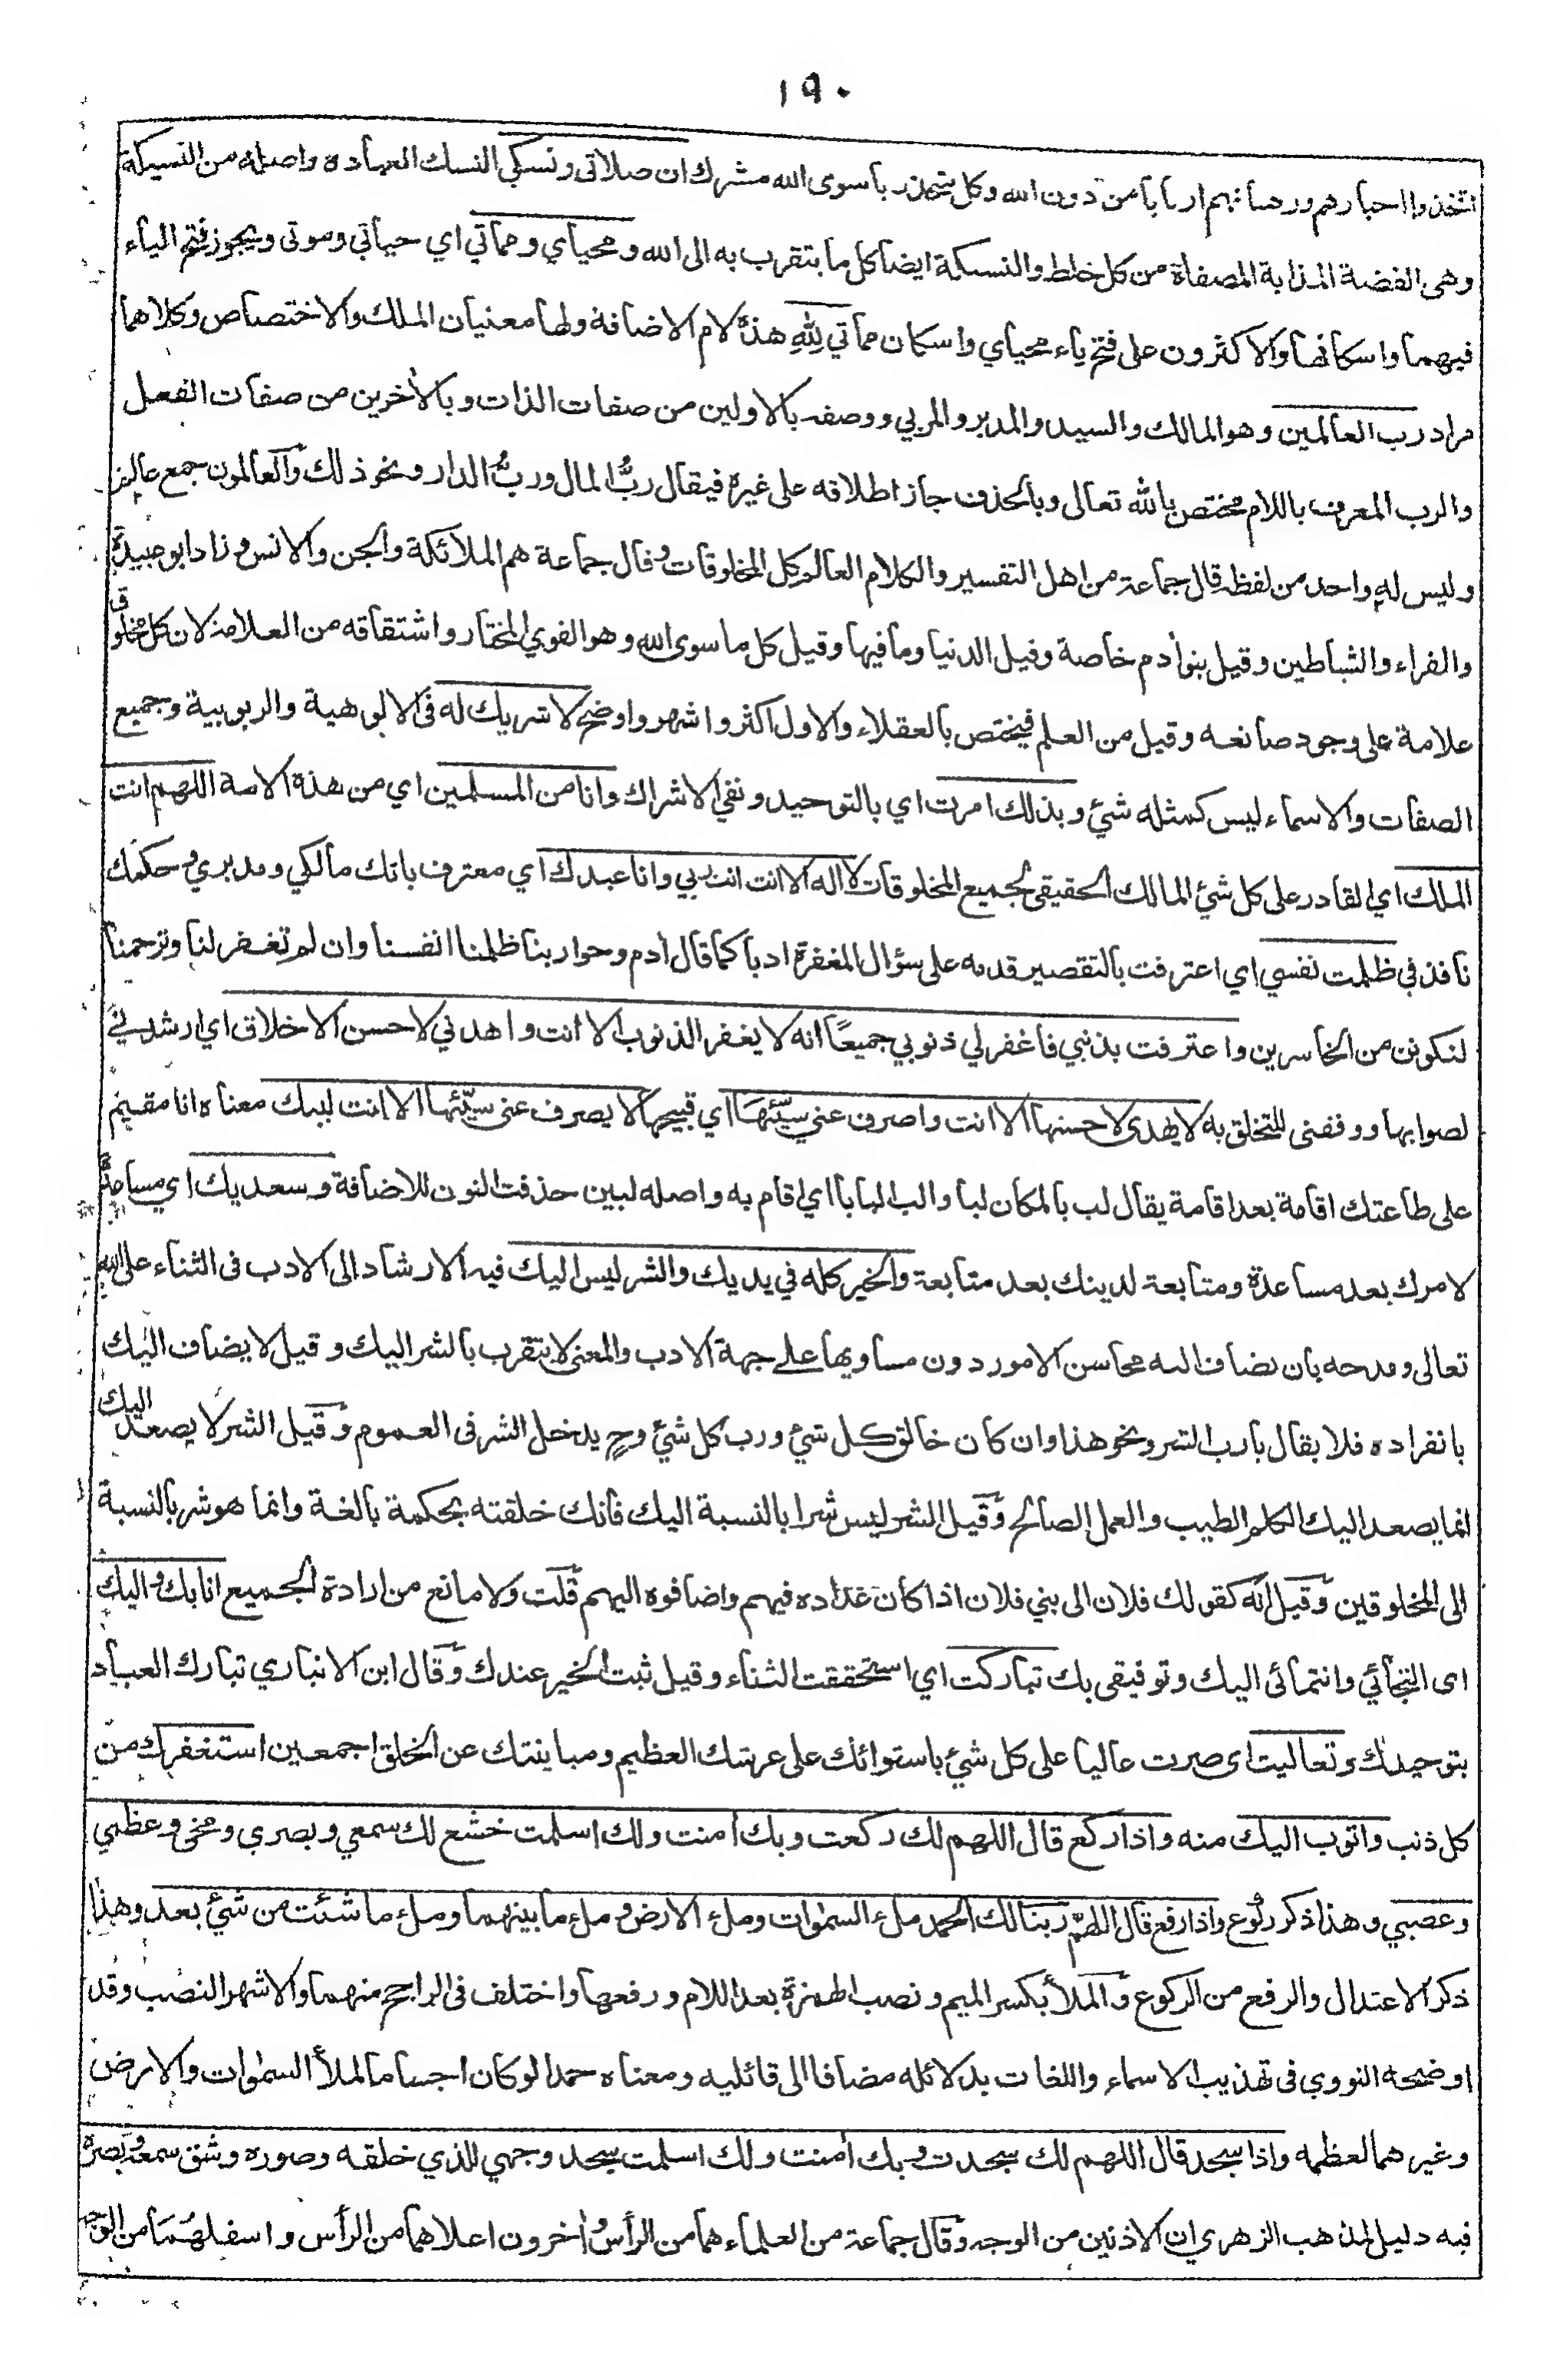 ١٩٠
اتخذوا احبارهم ورهبانهم اربابا من دون الله وكل متخذ ربا سوى الله مشرك ان صلاتي ونسكي النسك العبادة واصله من النسيكة
وهى الفضة المذابة المصفاة من كل خلط والنسيكة ايضا كل ما يتقرب به الى الله ومحياي ومماتي اي حياتي وموتى ويجوز فتح الياء
فيهما واسكانها والاكثرون على فتح ياء محياي واسكان مماتي لله هذه لام الاضافة ولها معنيان الملك والاختصاص وكلاهما
مراد رب العالمين وهو المالك والسيد والمدبر والمربي ووصفه بالاولين من صفات الذات وبالأخرين من صفات الفعل
والرب المعرف باللام مختص بالله تعالى وبالحذف جاز اطلاقه على غيره فيقال ربُّ المال وربُّ الدار ونحو ذلك والعالمون جمع عالم
وليس له واحد من لفظه قال جماعة من اهل التفسير والكلام العالم كل المخلوقات وقال جماعة هم الملائكة والجن والانس وزاد ابو عبيدة
والفراء والشياطين وقيل بنو أدم خاصة وقيل الدنيا وما فيها وقيل كل ما سوى الله وهو القوي المختار واشتقاقه من العلامة لان كل مخلوق
علامة على وجود صانعه وقيل من العلم فيختص بالعقلاء والاول اكثر واشهر واوضح لا شريك له فى الالوهية والربوبية وجميع
الصفات والاسماء ليس كمثله شئ وبذلك امرت اي بالتوحيد ونفي الاشراك وانا من المسلمين اي من هذة الامة اللهم انت
الملك اي القادر على كل شئ المالك الحقيقى لجميع المخلوقات لا اله الا انت انت ربي وانا عبدك اي معترف بانك مالكي ومدبري وحكمك
نافذ في ظلمت نفسي اي اعترفت بالتقصير قدمه على سؤال المغفرة ادبا كما قال أدم وحوا ربنا ظلمنا انفسنا وان لم تغفر لنا وترحمنا
لنكونن من الخاسرين واعترفت بذنبي فاغفر لي ذنوبي جميعًا انه لا يغفر الذنوب الا انت واهدني لاحسن الاخلاق اي ارشدني
لصوابها ووفقنى للتخلق به لا يهدى لاحسنها الا انت واصرف عني سيّئهَا اي قبيحها لا يصرف عنى سيّئها الا انت لبيك معناه انا مقيم
على طاعتك اقامة بعد اقامة يقال لب بالمكان لبا والب البابا اي اقام به واصله لبين حذفت النون للاضافة وسعديك اي مساعدة
لامرك بعد مساعدة ومتابعة لدينك بعد متابعة والخير كله في يديك والشر ليس اليك فيه الارشاد الى الادب فى الثناء على الله
تعالى ومدحه بان يضاف اليه محاسن الامور دون مساويها على جهة الادب والمعنى لا يتقرب بالشر اليك وقيل لا يضاف اليك
بانفراده فلا يقال يا رب الشر ونحو هذا وان كان خالق كل شئ ورب كل شئ وح يدخل الشر فى العموم وقيل الشر لا يصعد اليك
انما يصعد اليك الكلم الطيب والعمل الصالح وقيل الشر ليس شرا بالنسبة اليك فانك خلقته بحكمة بالغة وانما هو شر بالنسبة
الى المخلوقين وقيل انه كقولك فلان الى بني فلان اذا كان عداده فيهم واضافوه اليهم قلت ولا مانع من ارادة الجميع انا بك واليك
اى التجائي وانتمائى اليك وتوفيقى بك تباركت اي استحققت الثناء وقيل ثبت الخير عندك وقال ابن الانباري تبارك العباد
بتوحيدك وتعاليت اى صرت عاليا على كل شئ باستوائك على عرشك العظيم ومباينتك عن الخلق اجمعين استغفرك من
كل ذنب واتوب اليك منه واذا ركع قال اللهم لك ركعت وبك أمنت ولك اسلمت خشع لك سمعي وبصري ومخى وعظمي
وعصبي وهذا ذكر ركوع واذا رفع قال اللهم ربنا لك الحمد ملء السموات وملء الارض وملء ما بينهما وملء ما شئت من شئ بعد وهذا
ذكر الاعتدال والرفع من الركوع والملأ بكسر الميم ونصب الهمزة بعد اللام ورفعها واختلف فى الراجح منهما والاشهر النصب وقد
اوضحه النووي فى تهذيب الاسماء واللغات بدلائله مضافا الى قائليه ومعناه حمدا لو كان اجساما لملأ السموات والارض
وغيرهما لعظمه واذا سجد قال اللهم لك سجدت وبك أمنت ولك اسلمت سجد وجهي للذي خلقه وصوره وشق سمعه وبصره
فيه دليل لمذهب الزهري ان الاذنين من الوجه وقال جماعة من العلماء هما من الرأس وأخرون اعلاهما من الرأس واسفلهما من الوجه